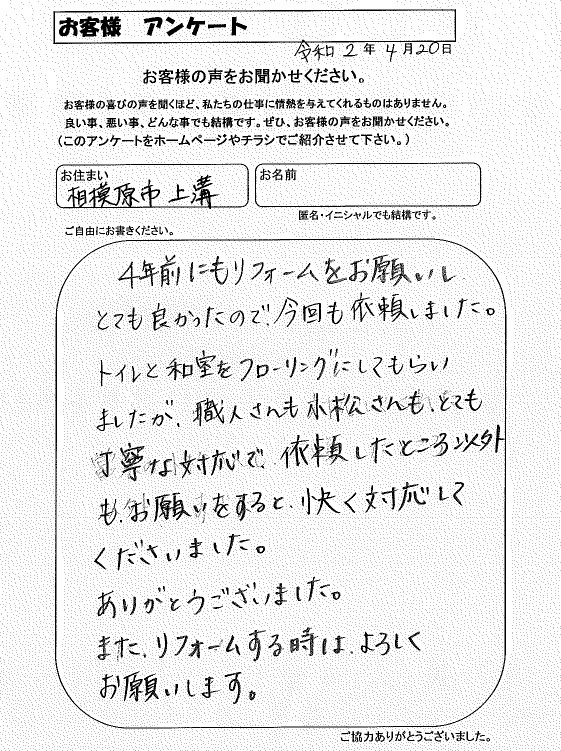 お客様 アンケート
令和 2 年 4 月 20 日
お客様の声をお聞かせください。
お客様の喜びの声を聞くほど、私たちの仕事に情熱を与えてくれるものはありません。
良い事、悪い事、どんな事でも結構です。ぜひ、お客様の声をお聞かせください。
(このアンケートをホームページやチラシでご紹介させて下さい。)
お住まい
相模原市 上溝
お名前
匿名・イニシャルでも結構です。
ご自由にお書きください。
4年前にもリフォームをお願いし
とても良かったので、今回も依頼しました。
トイレと和室をフローリングにしてもらい
ましたが、職人さんも小松さんも、とても
丁寧な対応で、依頼したところ以外
も、お願いをすると、快く対応して
くださいました。
ありがとうございました。
また、リフォームする時は、よろしく
お願いします。
ご協力ありがとうございました。